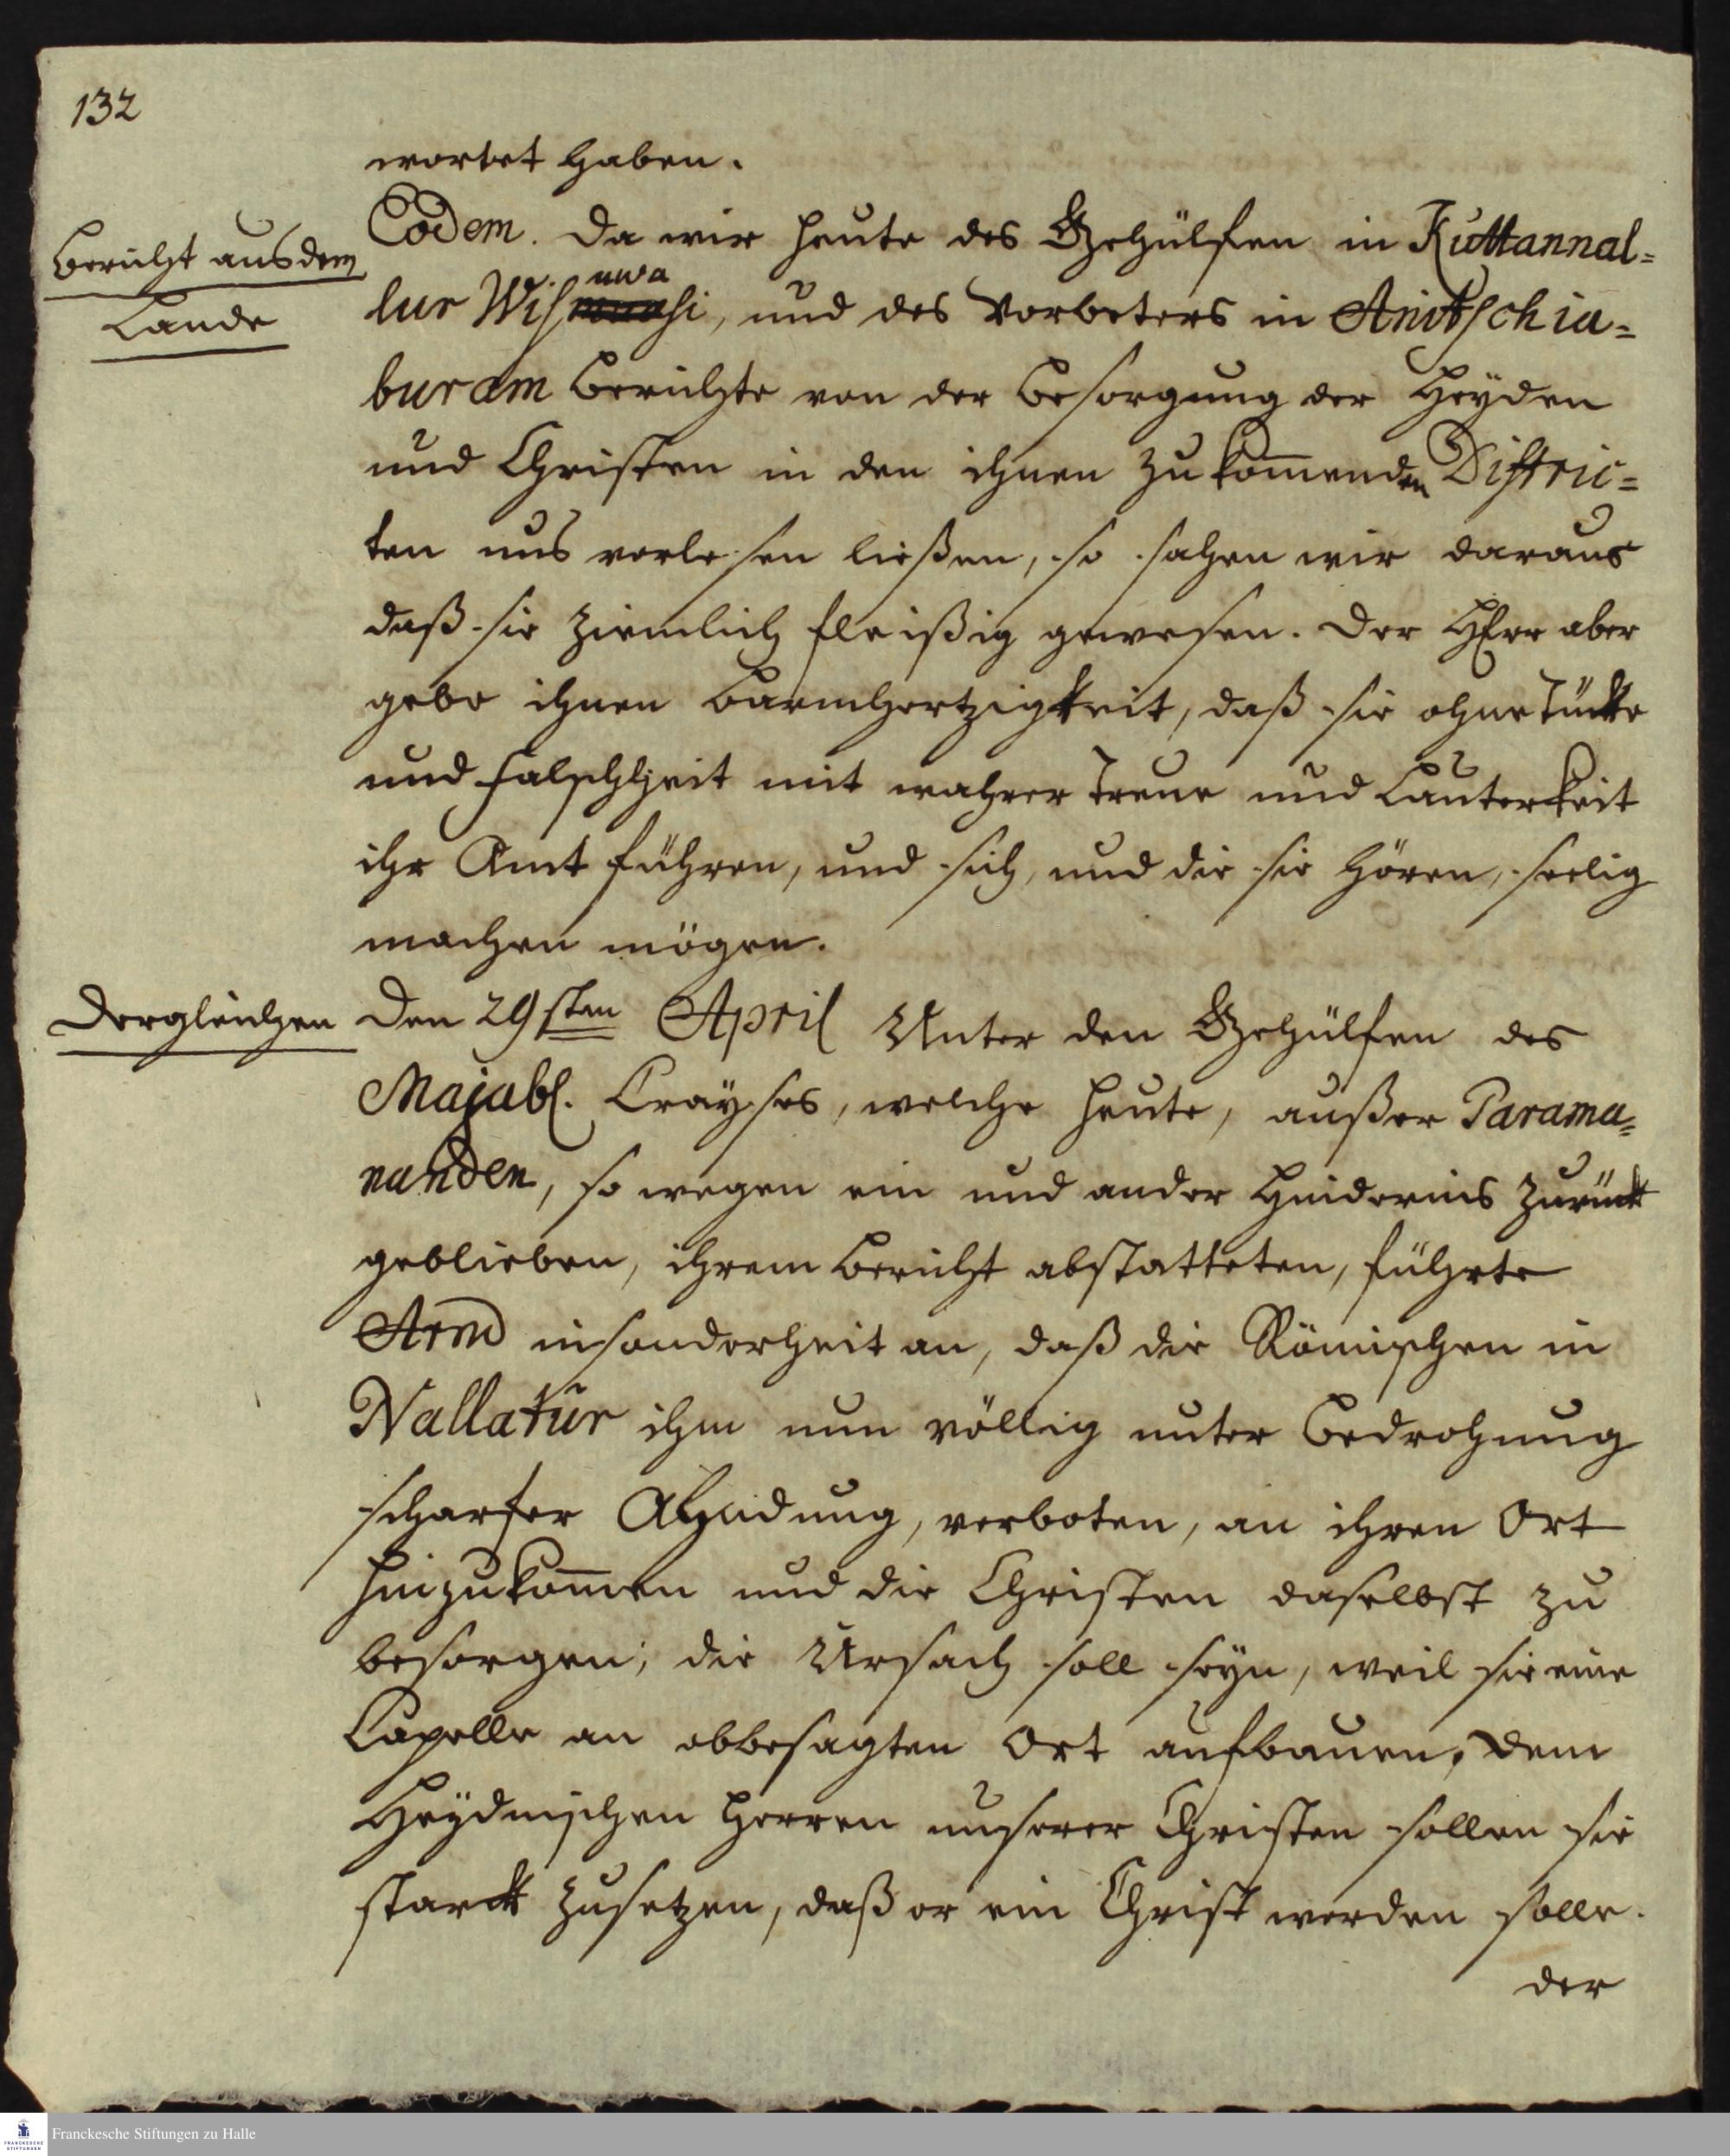 132
wortet haben.
Bericht aus dem
Lande
Eodem. Da wir heute des Gehülfen in Kuttannal=
lur Wisuwasi, und des Vorbeters in
buram Berichte von der Besorgung der Heyden
und Christen in den ihnen zukom̅enden Distric=
ten uns vorlesen ließen, so sahen wir daraus
daß sie ziemlich fleißig gewesen. Der HErr aber
gebe ihnen Barmhertzigkeit, daß sie ohne Tücke
und Falschheit mit wahrer Treue und Lauterkeit
ihr Amt führen, und sich, und die sie hören, seelig
machen mögen.
Dergleichen
Den 29sten April Unter den Gehülfen des
Majabl. Crayses, welche heute, außer Parama=
nanden, so wegen ein und ander Hindernis zurück
geblieben, ihrem Bericht abstatteten, führte
Arud insonderheit an, daß die Römischen in
Nallatur ihm nun völlig unter Bedrohung
scharfer Ahndung, verboten, an ihren Ort
hinzukom̅en und die Christen daselbst zu
besorgen; die Ursach soll seyn, weil sie eine
Capelle an obbesagten Ort aufbauen, dem
Heydnischen Herren unserer Christen sollen sie
starck zusetzen, daß er ein Christ werden solle.
der
Franckesche Stiftungen zu Halle